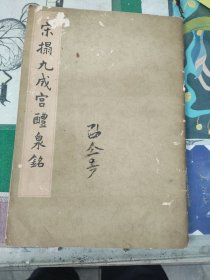 宋搨九成宮醴泉銘